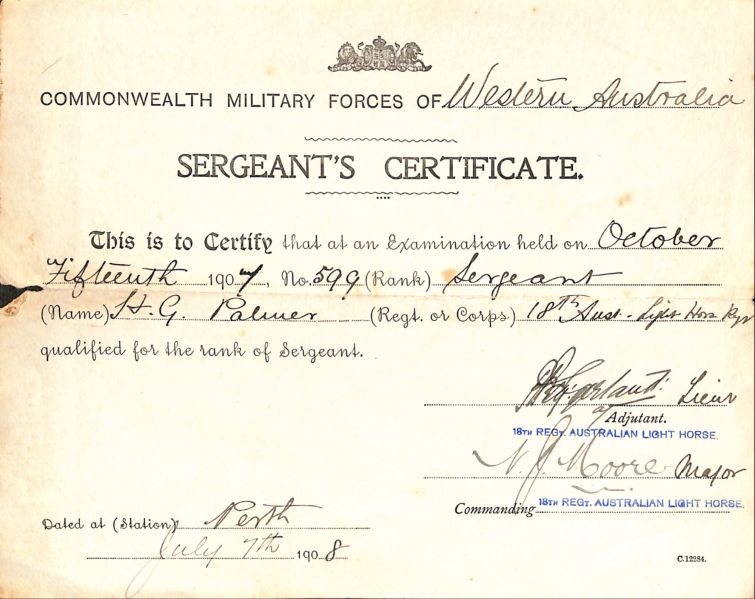 COMMONWEALTH MILITARY FORCES OF Western Australia
SERGEANT'S CERTIFICATE.
This is to Certify that at an Examination held on October
Fifteenth 1907, No. 599 (Rank) Sergeant
(Name) H. G. Palmer (Regt. or Corps) 18th Aust. Light Hors Regt
qualified for the rank of Sergeant.
Lieut
Adjutant.
18TH REGT. AUSTRALIAN LIGHT HORSE.
N. J. Moore Major
Commanding 18TH REGT. AUSTRALIAN LIGHT HORSE.
Dated at (Station) Perth
July 7th 1908
C.12284.